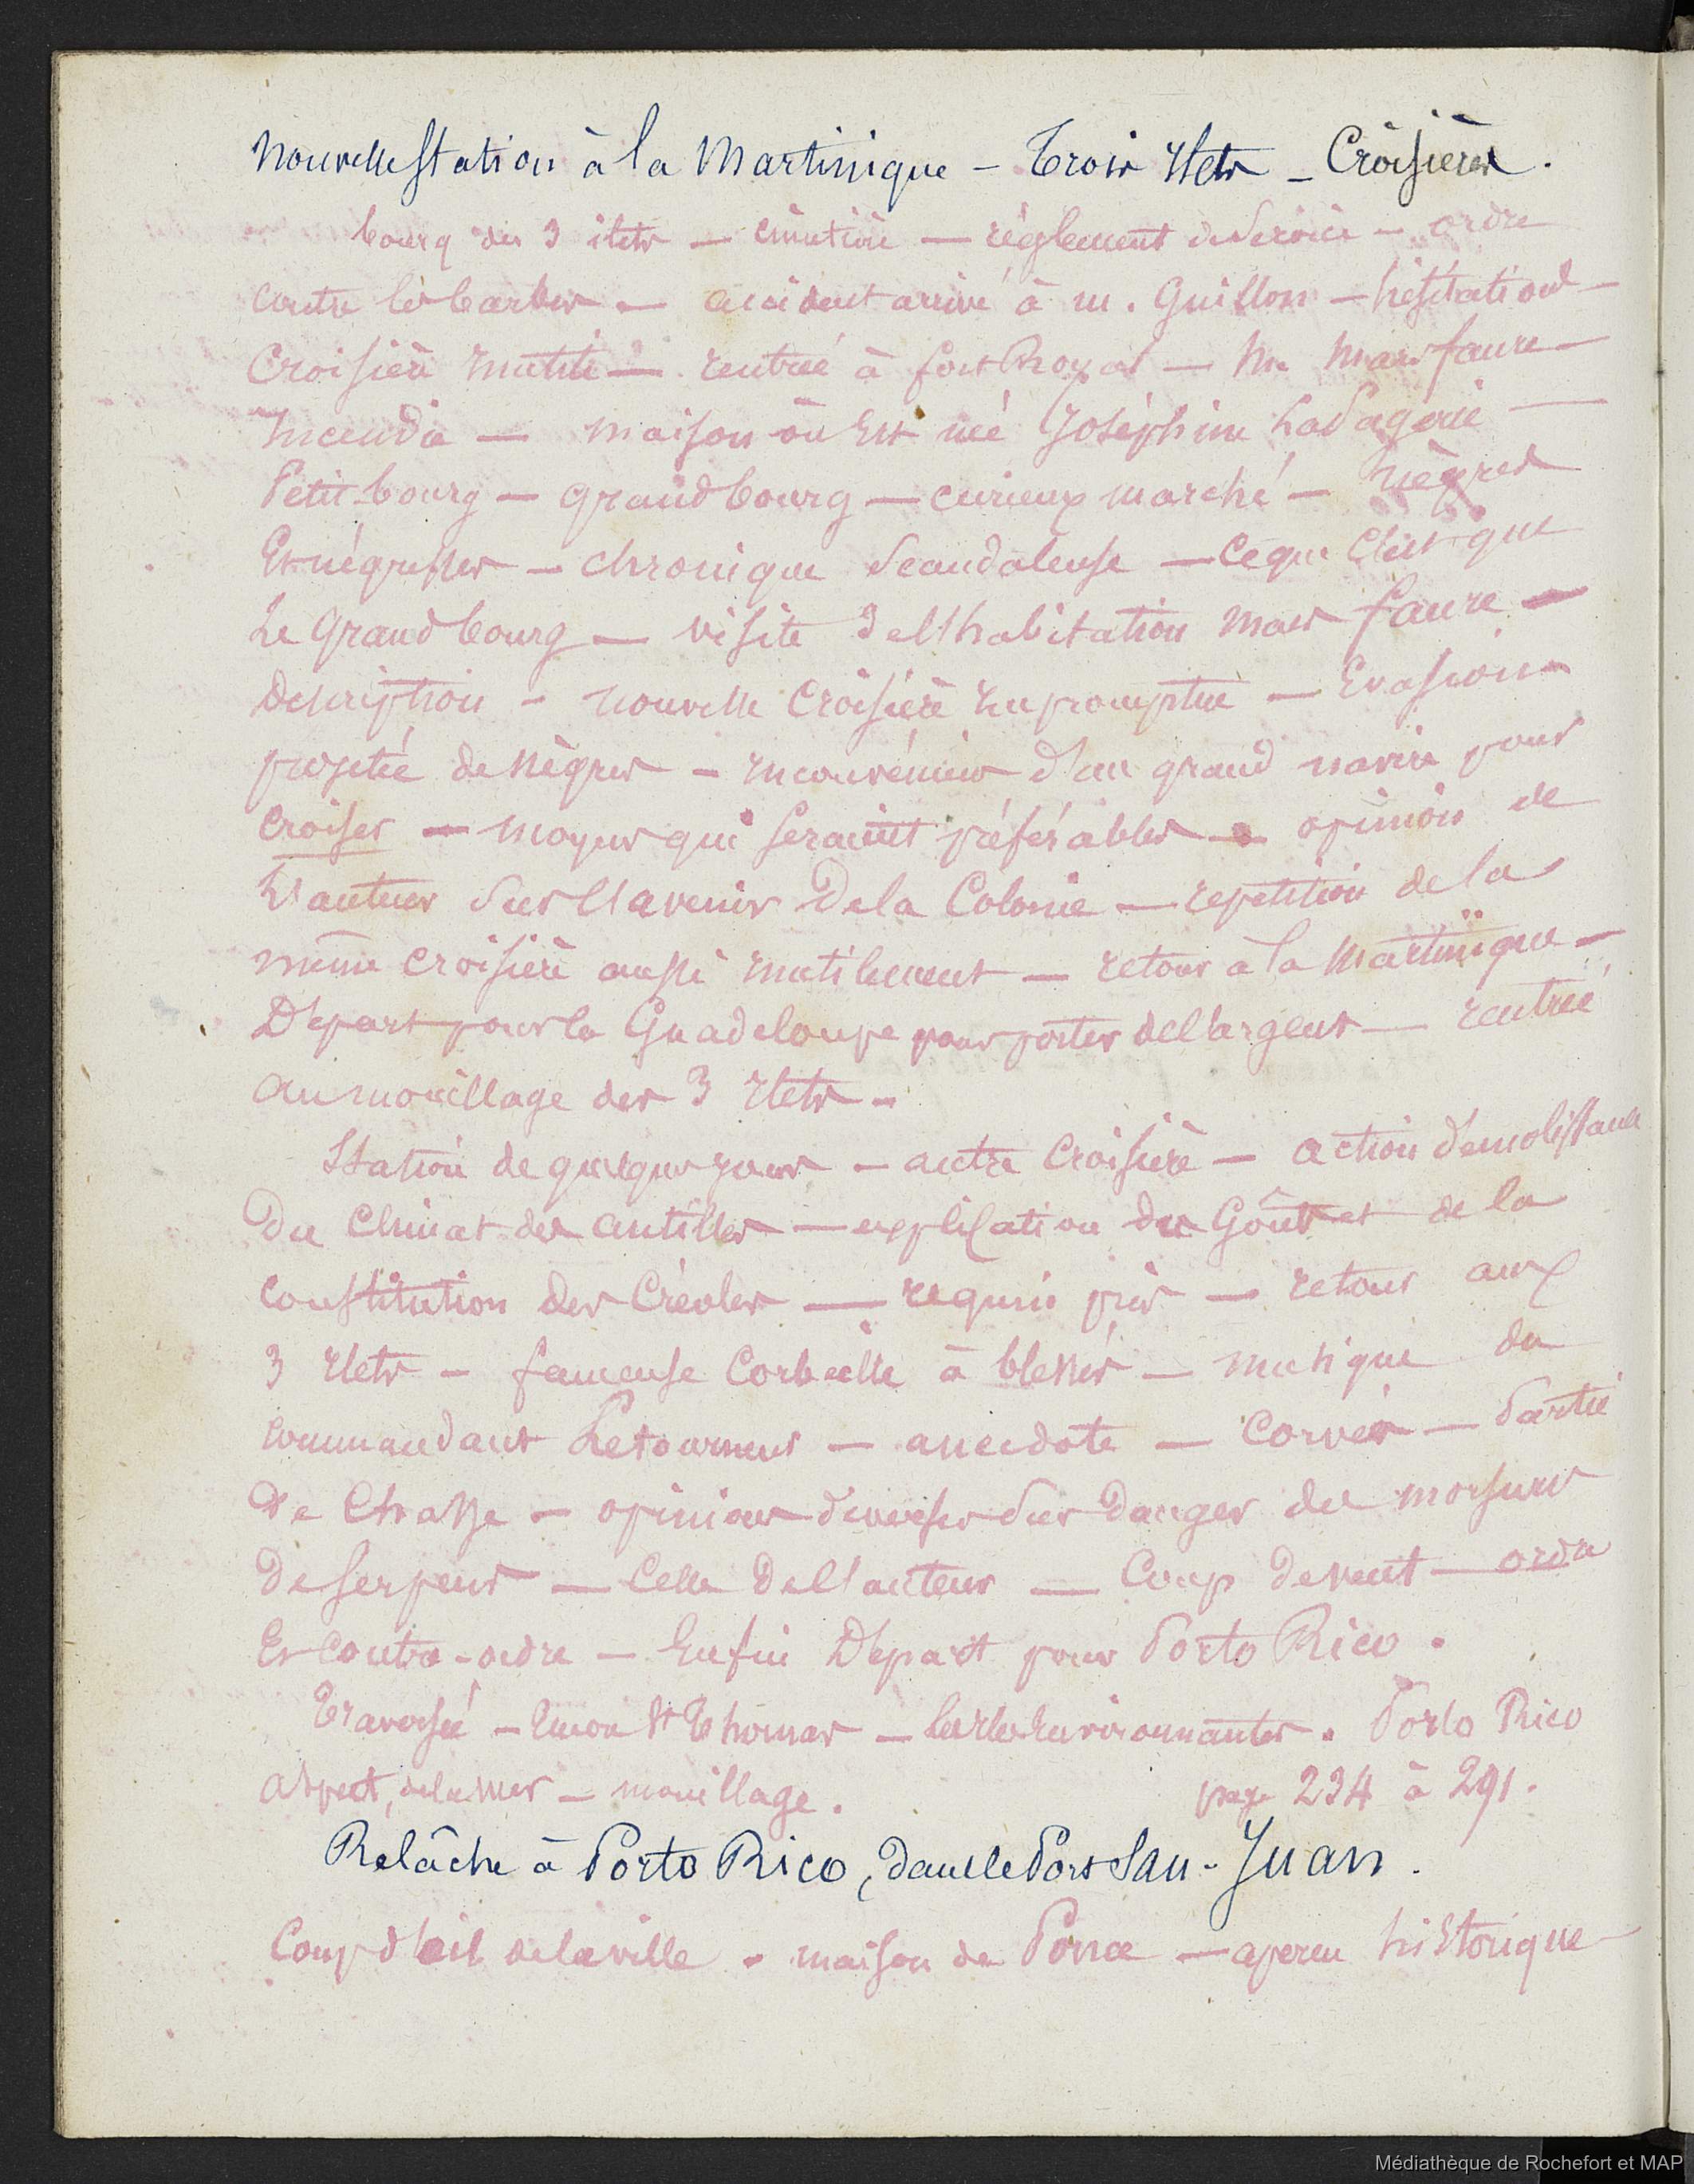 Nouvelle Station à la Martinique - Trois Ilets - Croisières.
bourg des 3 ilets - cimetière - règlement de service - ordre
contre les barbes - accident arrivé à M. Guillon - hésitations -
Croisière inutile - rentrée à fort Royal - Mr Mas faure -
Incendie - maison où Est née Joséphine LaPagerie -
Petit bourg - grand bourg - curieux marché - Nègres
Et négresses - chronique Scandaleuse - Ce que C'est que
Le Grand bourg - visite de l'habitation Mas faure -
Description - nouvelle Croisière Impromptue - Evasion
projetée de Nègres - inconvéniens d'un grand navire pour
croiser - moyens qui seraient préférables - opinion de
L'auteur sur l'avenir De la Colonie - répétition de la
même croisière aussi inutilement - retour à la Martinique -
Départ pour la Guadeloupe pour porter de l'argent - rentrée
au mouillage des 3 Ilets -
Station de quelques jours - autre Croisière - action démolissante
Du Climat des Antilles - explication du Goût et de la
constitution des Créoles - requin pris - retour aux
3 Ilets - fameuse Corbeille à - musique du
commandant Letourneur - anecdote - Corvée - Partie
De Chasse - opinions diverses sur Danger des morsures
De serpens - Celle De l'auteur - Coup de vent - ordre
Et contre-ordre - Enfin Départ pour Porto Rico.
Traversée - St Thomas - les Iles Environnantes. Porto Rico
aspect, de la mer - mouillage. page 234 à 291.
Relâche à Porto Rico, dans le Port San-Juan.
Coup d'œil de la ville - maison de Ponce - apercu historique